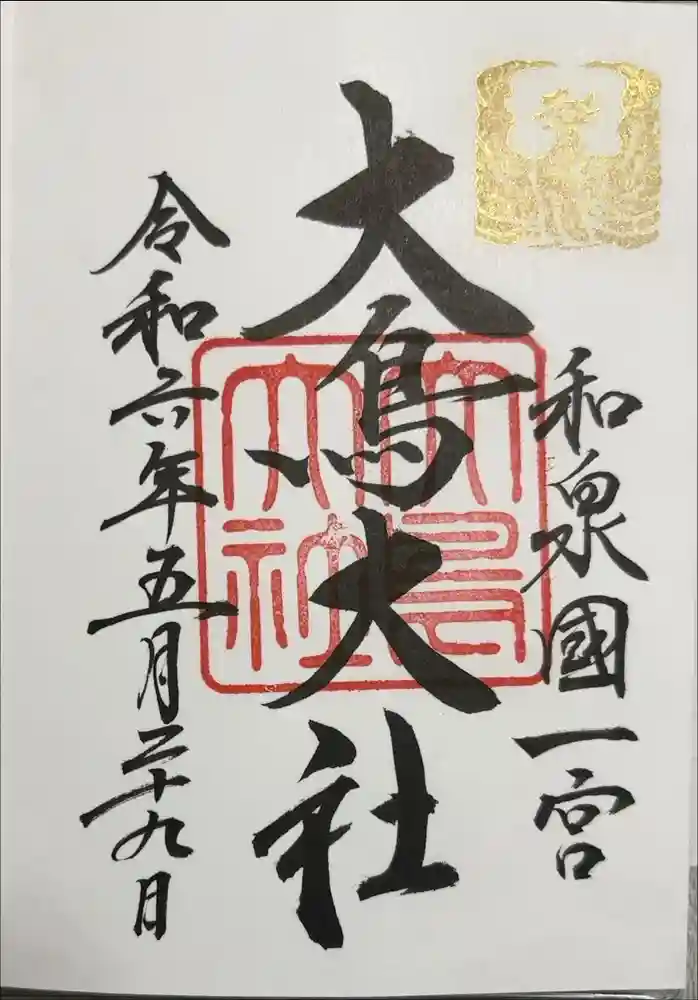 和泉國一宮
大鳥大社
大鳥大社
令和六年五月二十九日